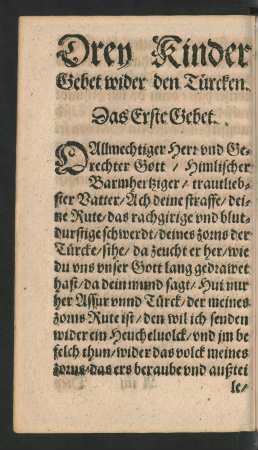 Drey Kinder
Gebet wider den Türcken.
Das Erste Gebet.
O Allmechtiger Herr vnd Ge-
rechter Gott / Himlischer
Barmhertziger / trautlieb-
ster Vatter / Ach deine straffe / dei-
ne Rute / das rachgirige vnd blut-
durstige schwerdt / deines zorns der
Türcke / sihe / da zeucht er her / wie
du vns vnser Gott lang gedrawet
hast / da dein mund sagt / Hui nur
her Assur vnnd Türck / der meines
zorns Rute ist / den wil ich senden
wider ein Heuchelvolck / vnd jm be
felch thun / wider das volck meines
zorns / das ers beraube vnd außtei
le /